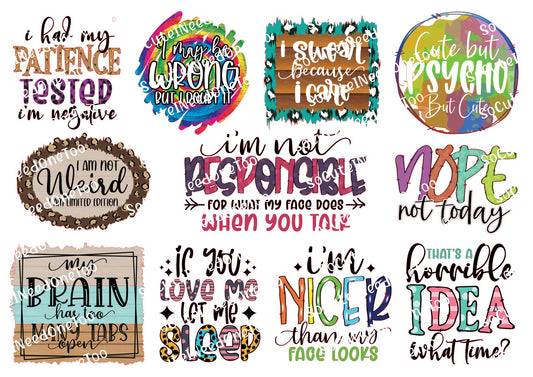 i had my
PATIENCE
TESTED
i'm negative
i may be
WRONG
BUT i DOUBT IT
i swear
because
i care
Cute but
PSYCHO
But Cute
I AM NOT
Weird
LIMITED EDITION
i'm not
RESPONSIBLE
FOR WHAT MY FACE DOES
WHEN YOU TALK
NOPE
not today
my
BRAIN
has too
MANY TABS
open
iF YOU
LOVE ME
LET ME
SLEEP
i'm
NICER
than my
FACE LOOKS
THAT'S A
horrible
IDEA
what time?
SoCuteINeedOneToo